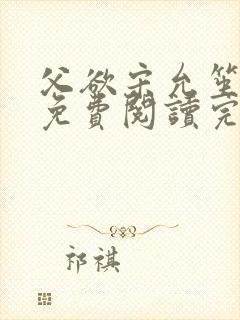 父欲宋允笙
免費閱讀完
祁祺